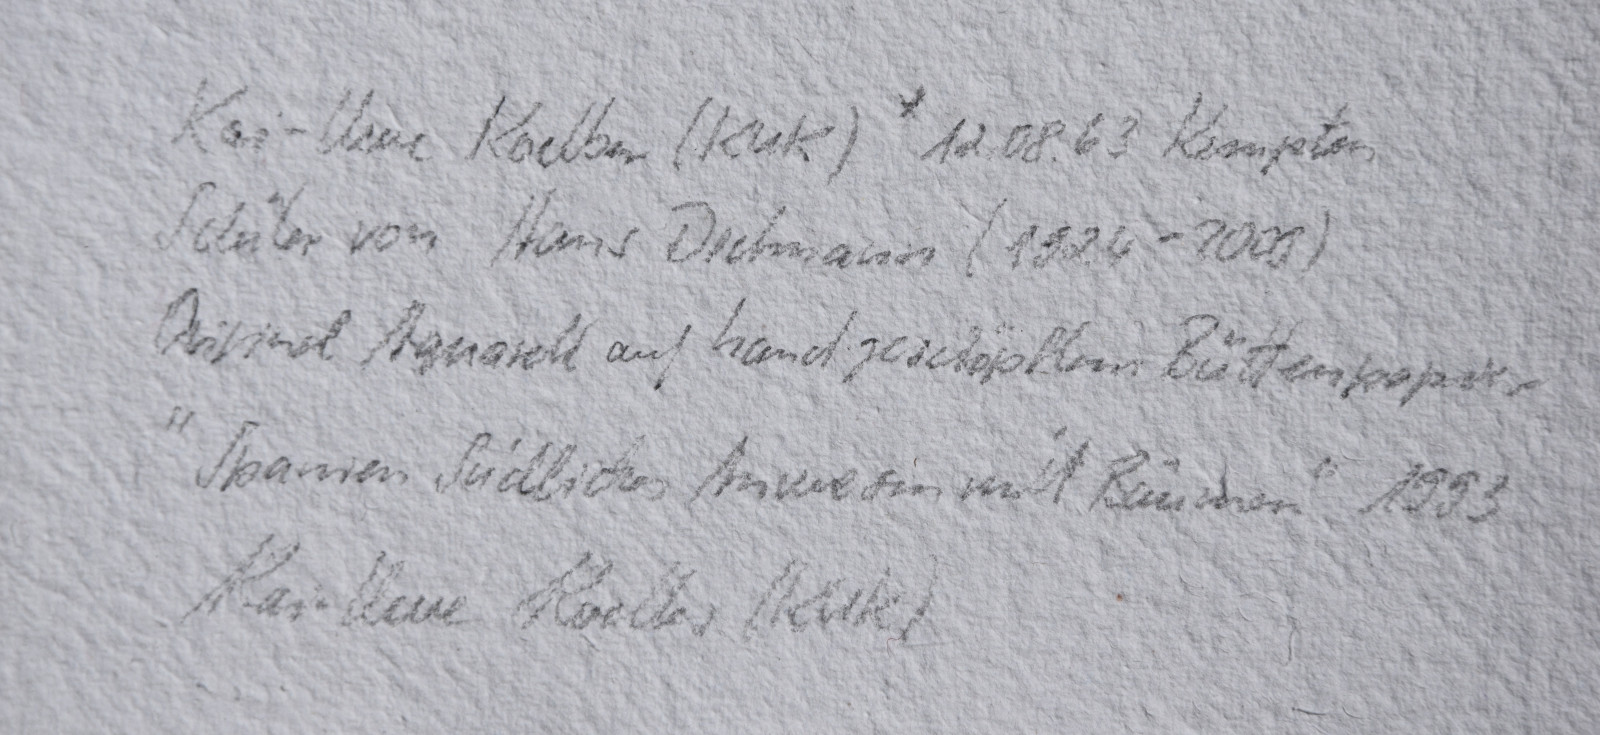 Kai-Uwe Koelber (KUK) * 12.08.63 Kempten
Schüler von Hans Dietmann (1924-2001)
Original Aquarell auf handgeschöpftem Büttenpapier
"Spanien Südliches Anwesen mit Bäumen" 1993
Kai-Uwe Koelber (KUK)